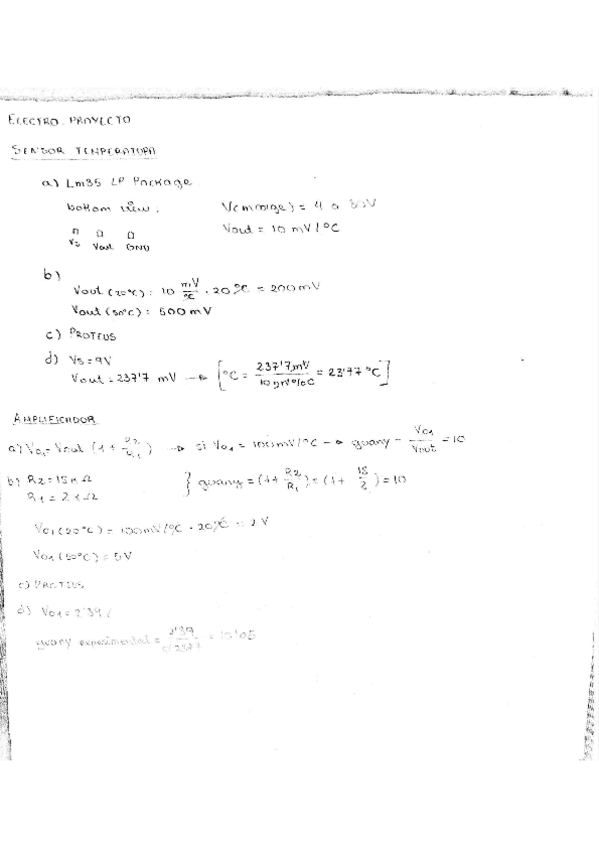 ELECTRO. PROYECTO
SENSOR TEMPERATURA
a) Lm35 LP Package
bottom view: V(em range) = 4 a 30V
Vout = 10 mV/°C
Vs Vout GND
b)
Vout (20°C): 10 mV/°C · 20°C = 200mV
Vout (50°C): 500mV
c) PROTEUS
d) Vs = 9V
Vout = 237'7 mV → [°C = 237'7mV / 10mV/°C = 23'77 °C]
AMPLIFICADOR
a) Vo1 = Vout (1 + R2/R1) → si Vo1 = 100mV/°C → guany = Vo1/Vout = 10
b) R2 = 18KΩ
R1 = 2KΩ } guany = (1 + R2/R1) = (1 + 18/2) = 10
Vo1 (20°C) = 100mV/°C · 20°C = 2V
Vo1 (50°C) = 5V
c) PROTEUS
d) Vo1 = 2'39
guany experimental = 2'39 / 0'2377 = 10'05